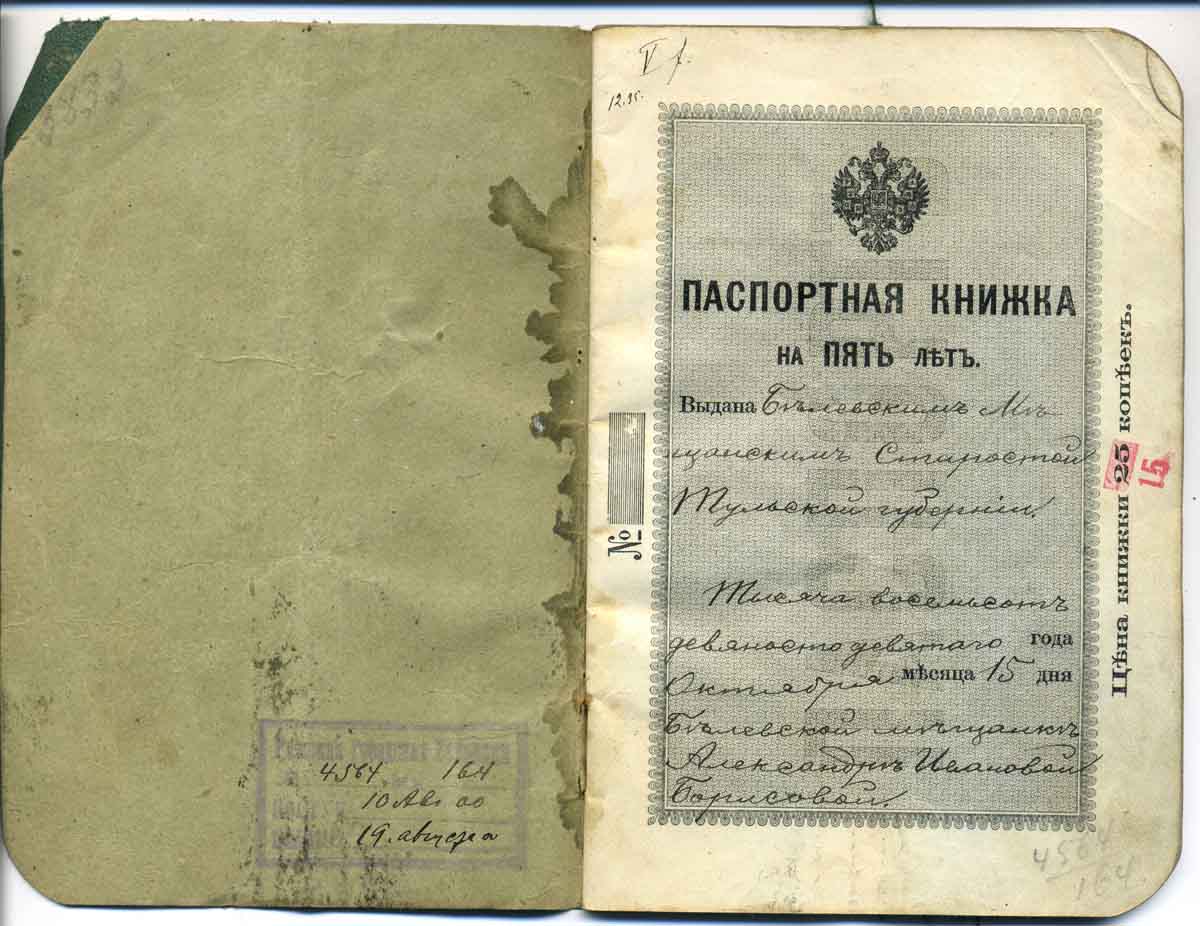 4564 164
10 Авг 00
19. августа
V f.
12.95.
ПАСПОРТНАЯ КНИЖКА
НА ПЯТЬ ЛѢТЪ.
Выдана Бѣлевскимъ Мѣ
щанскимъ Старостой
Тульской губерніи.
Тысяча восемьсотъ
девяносто девятаго года
Октября мѣсяца 15 дня
Бѣлевской мѣщанкѣ
Александрѣ Ивановой
Борисовой.
№
Цѣна книжки 25 копѣекъ.
15
4564
164